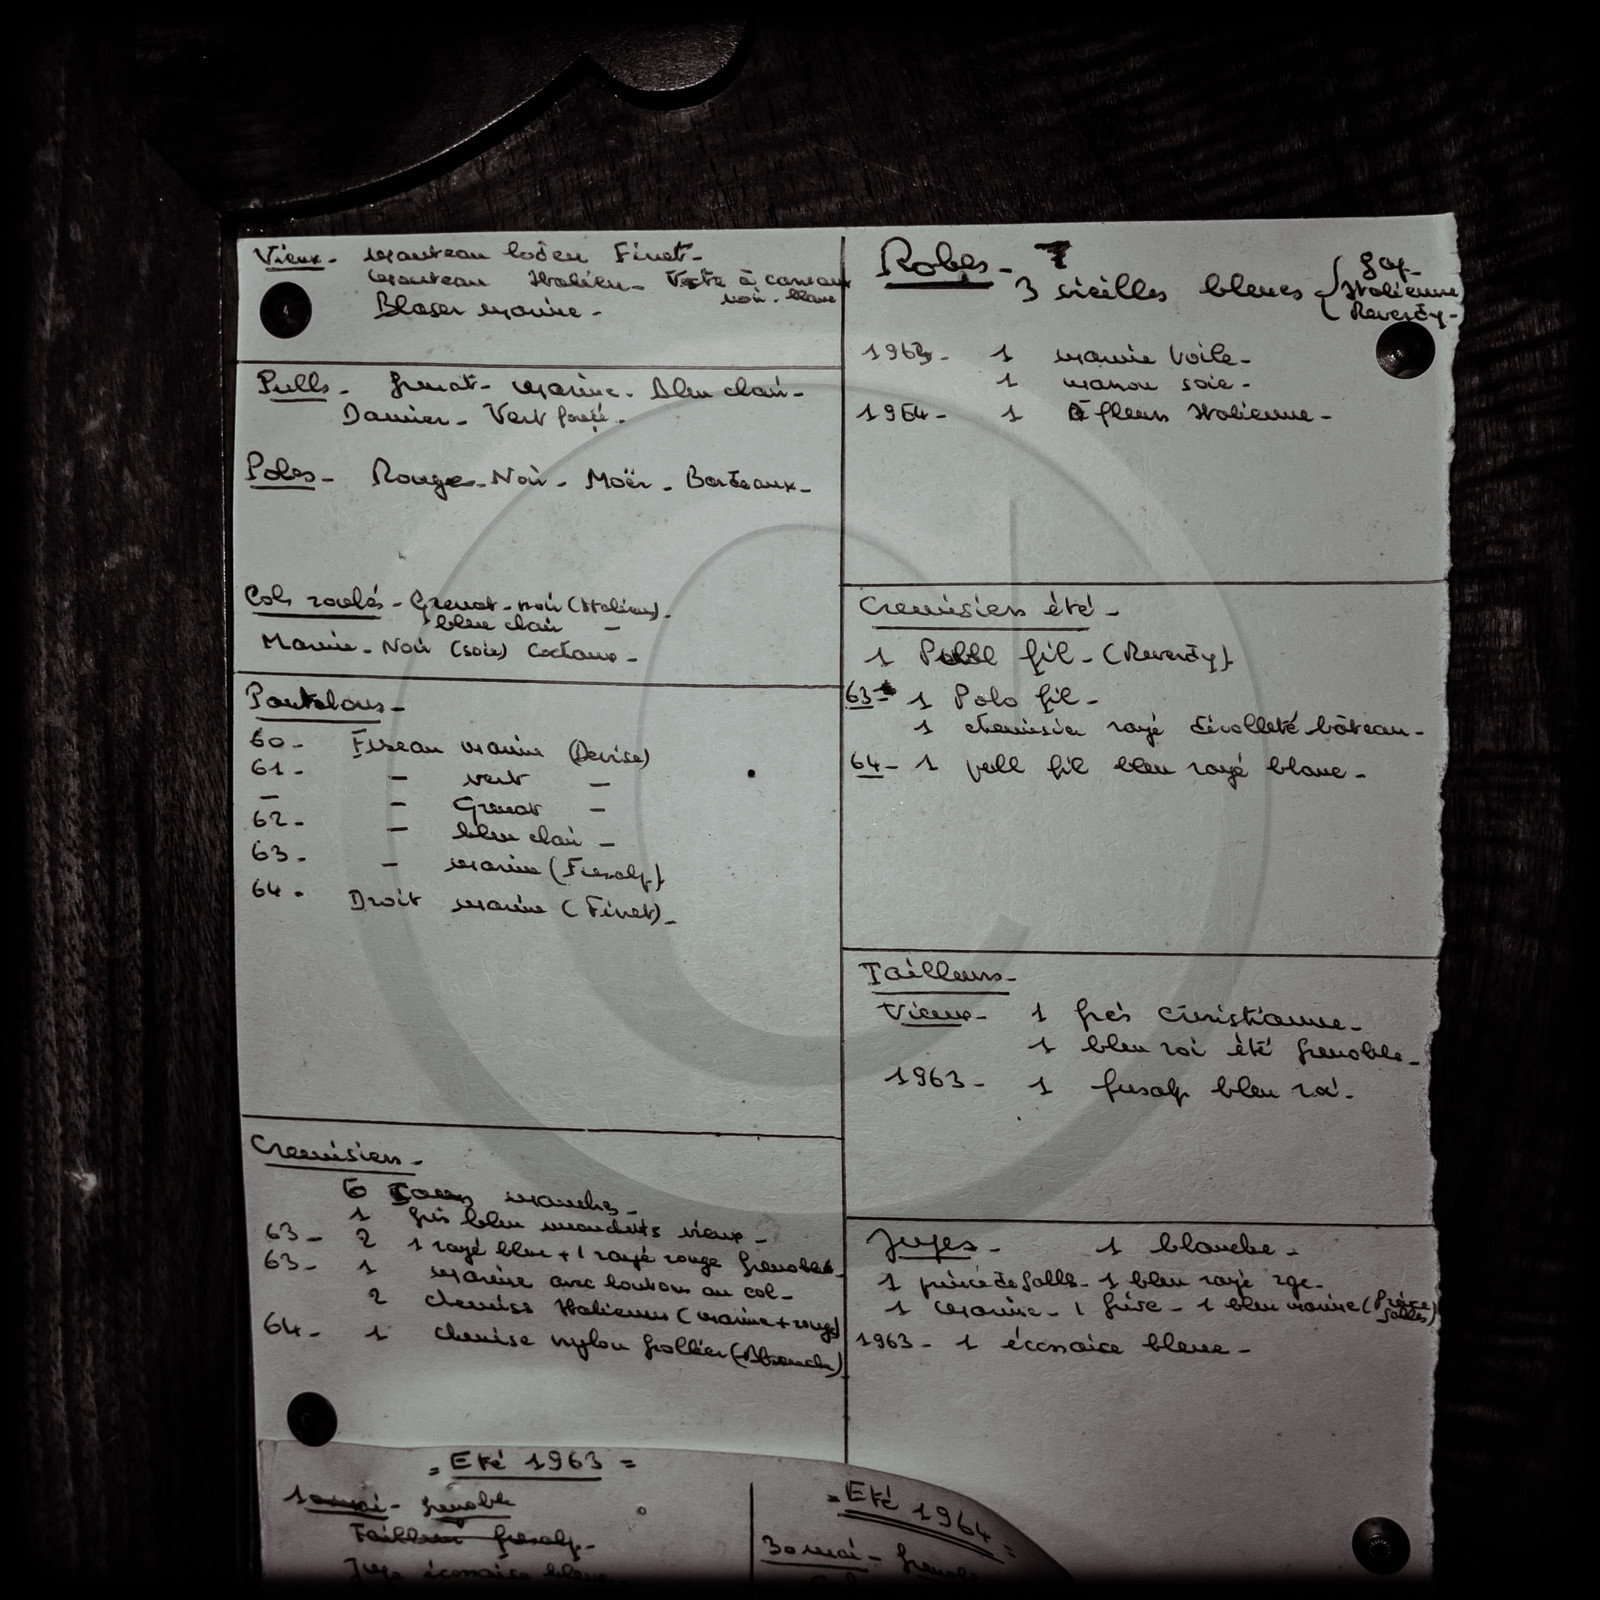 Vieux - Manteau loden Finet -
Manteau Italien - Veste à carreaux
noir - blanc
Blaser marine -
Pulls - Grenat - marine - Bleu clair -
Damier - Vert foncé -
Polos - Rouge - Noir - Moër - Bordeaux -
Cols roulés - Grenat - noir (Italien) -
bleu clair -
Marine - Noir (soie)
Pantalons -
60 - Fuseau marine (Devise)
61 - - vert -
- - Grenat -
62 - - bleu clair -
63 - - marine (Fusalp)
64 - Droit marine (Finet) -
Chemisiers -
6 manches -
1 gris bleu vieux -
63 - 2 1 rayé bleu + 1 rayé rouge Grenoble -
63 - 1 marine avec boutons au col -
2 chemises Italiennes (marine + rouge)
64 - 1 chemise nylon
Robes - 7
3 vieilles bleues Gap -
Italienne
Reverdy -
1963 - 1 marine voile -
1 marron soie -
1964 - 1 à fleurs Italienne -
Chemisiers été -
1 fil - (Reverdy)
63 - 1 Polo fil -
1 chemisier rayé décolleté bâteau -
64 - 1 pull fil bleu rayé blanc -
Tailleurs -
Vieux - 1 gris Christianne -
1 bleu roi été Grenoble -
1963 - 1 fusalp bleu roi -
Jupes - 1 blanche -
1 prince de galles - 1 bleu rayé rge -
1 marine - 1 grise - 1 bleu marine (Prince
galles)
1963 - 1 écossaise bleue -
= Eté 1963 =
Grenoble
Tailleur fusalp -
Jupe écossaise bleue -
= Eté 1964 =
30 mai - Grenoble